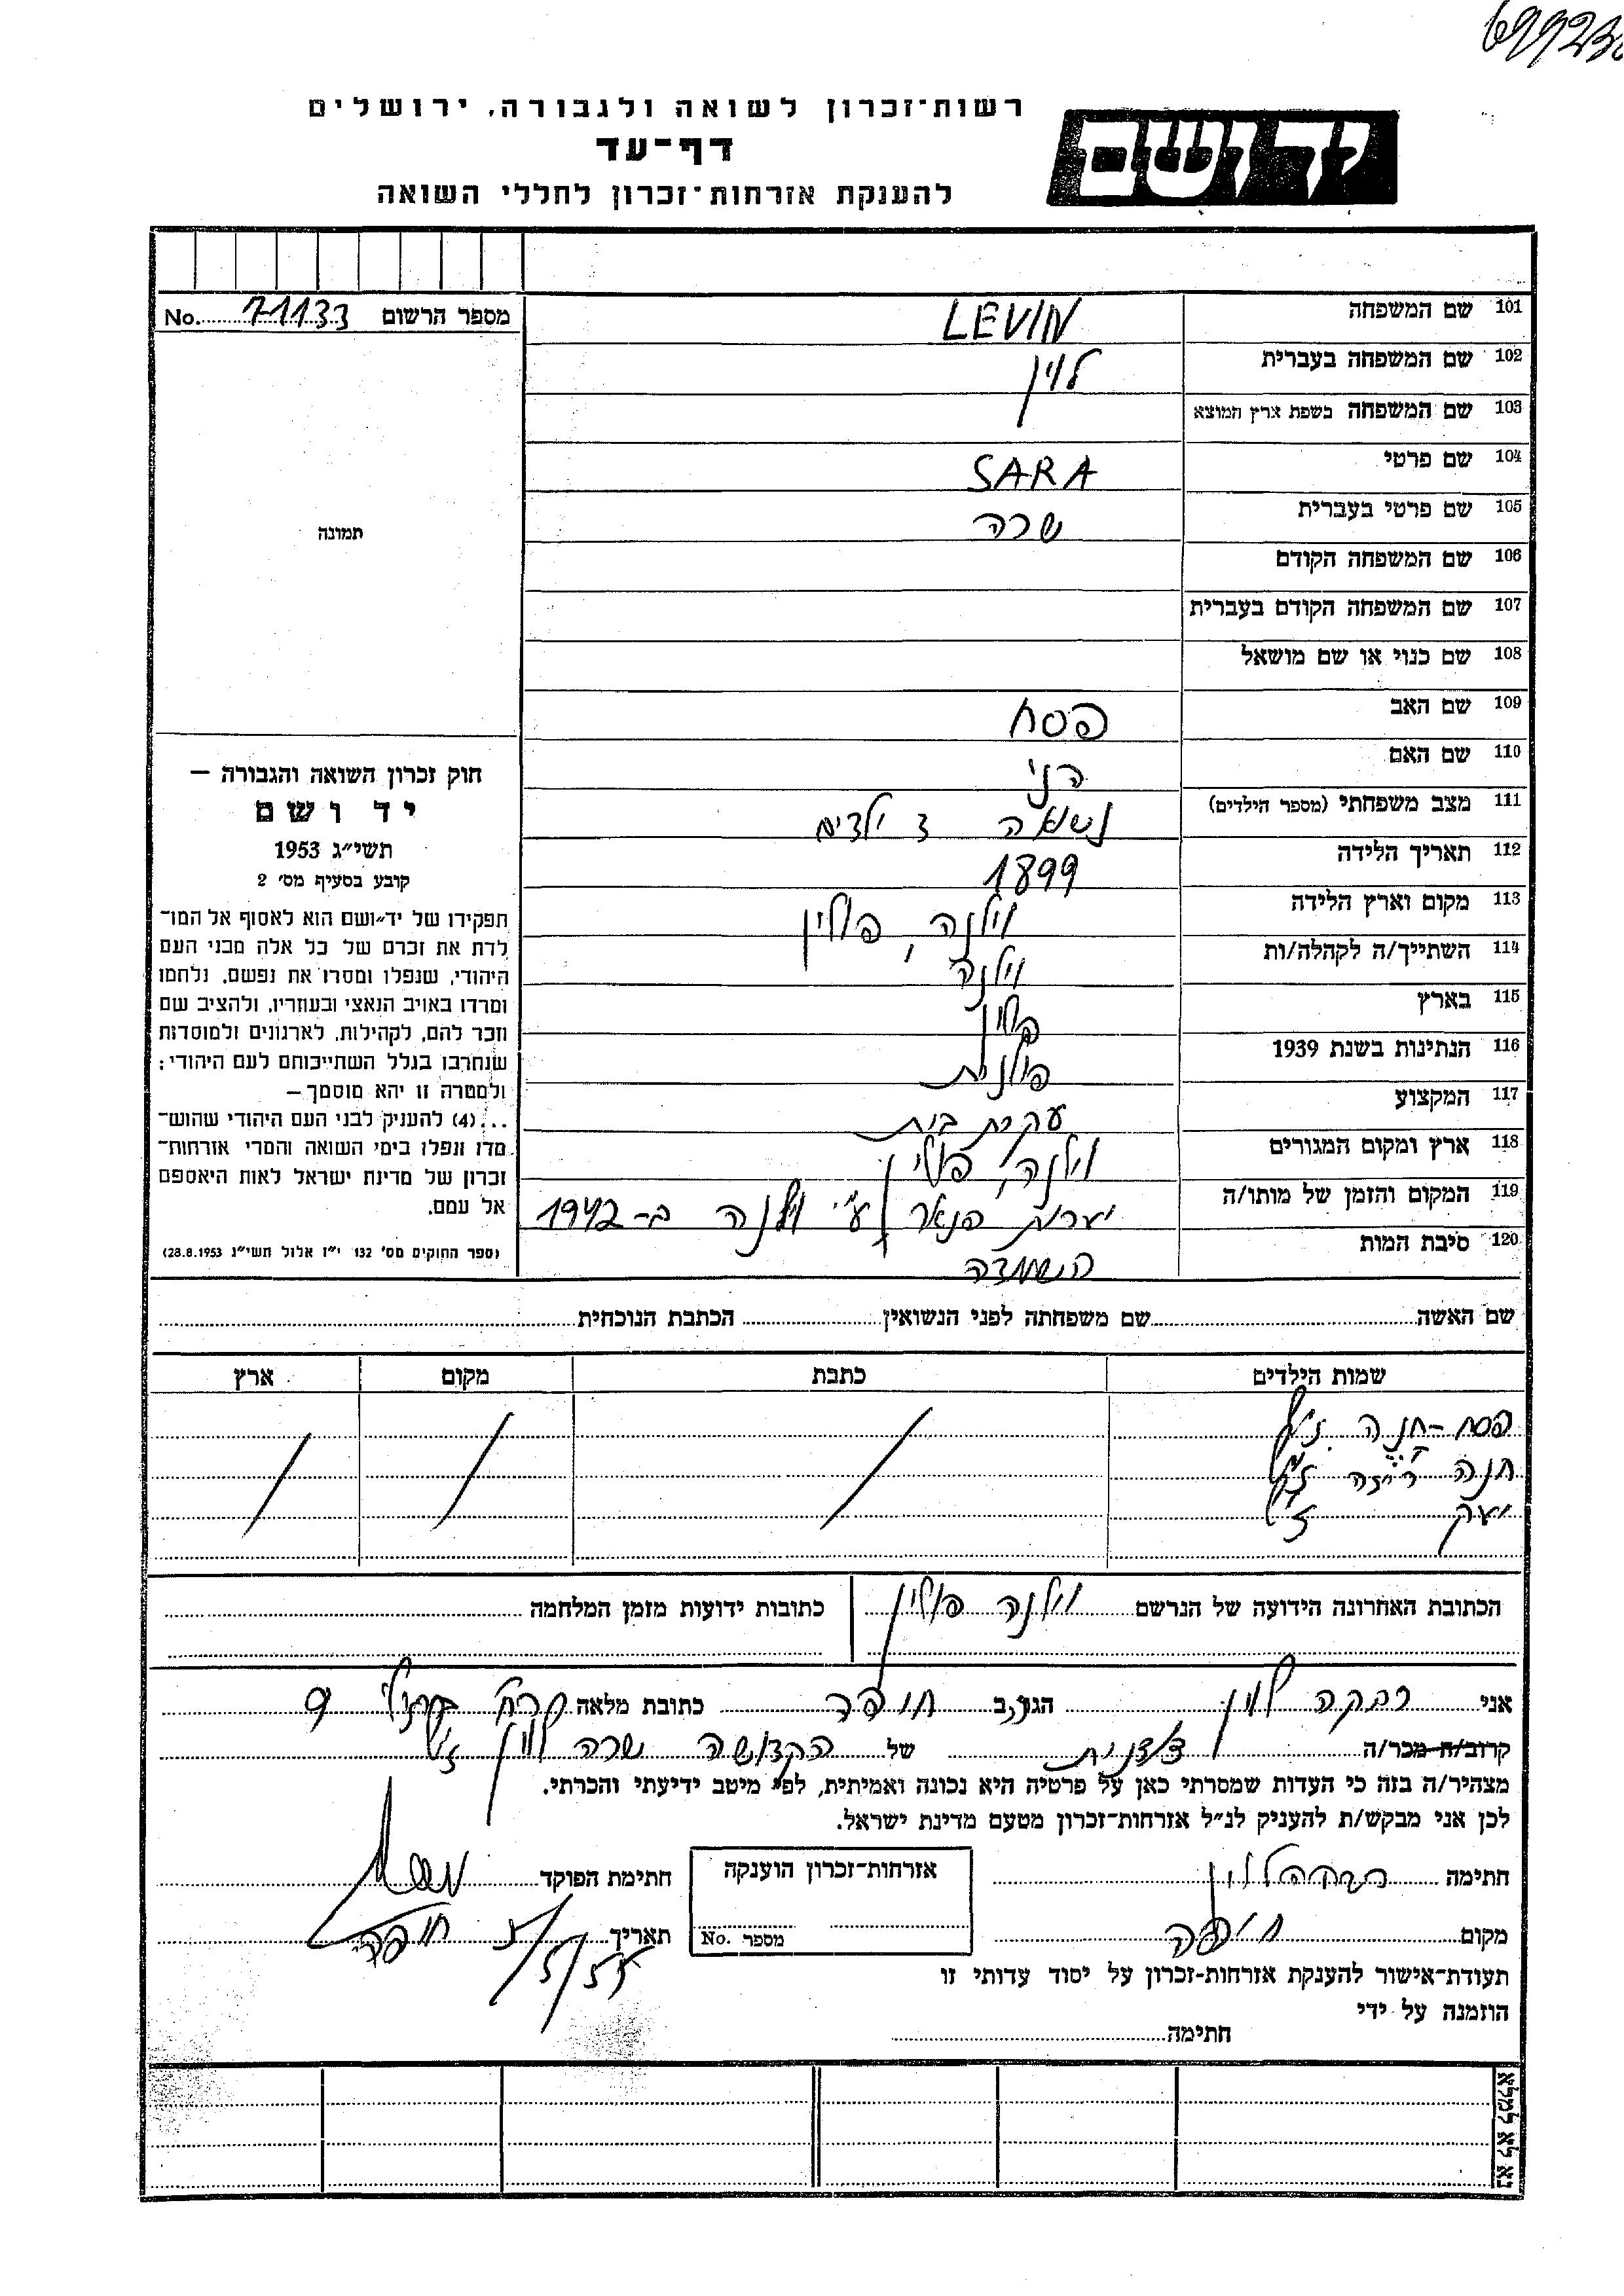 רשות־זכרון לשואה ולגבורה, ירושלים
דף־עד
להענקת אזרחות־זכרון לחללי השואה
יד ושם
מספר הרשום No. 71133
תמונה
חוק זכרון השואה והגבורה —
יד ושם
תשי״ג 1953
קובע בסעיף מס׳ 2
תפקידו של יד־ושם הוא לאסוף אל המו־
לדת את זכרם של כל אלה מבני העם
היהודי, שנפלו ומסרו את נפשם, נלחמו
ומרדו באויב הנאצי ובעוזריו, ולהציב שם
וזכר להם, לקהילות, לארגונים ולמוסדות
שנחרבו בגלל השתייכותם לעם היהודי;
ולמטרה זו יהא מוסמך —
...(4) להעניק לבני העם היהודי שהוש־
מדו ונפלו בימי השואה והמרי אזרחות־
זכרון של מדינת ישראל לאות היאספם
אל עמם.
(ספר החוקים מס׳ 132 י״ז אלול תשי״ג 28.8.1953)
101 שם המשפחה LEVIN
102 שם המשפחה בעברית לוין
103 שם המשפחה בשפת ארץ המוצא
104 שם פרטי SARA
105 שם פרטי בעברית שרה
106 שם המשפחה הקודם
107 שם המשפחה הקודם בעברית
108 שם כנוי או שם מושאל
109 שם האב פסח
110 שם האם
111 מצב משפחתי (מספר הילדים) נשואה 3 ילדים
112 תאריך הלידה 1899
113 מקום וארץ הלידה וילנה, פולין
114 השתייך/ה לקהלה/ות וילנה
115 בארץ פולין
116 הנתינות בשנת 1939 פולנית
117 המקצוע עקרת בית
118 ארץ ומקום המגורים וילנה, פולין
119 המקום והזמן של מותו/ה יערות פונאר ע״י וילנה ב־1942
120 סיבת המות השמדה
שם האשה שם משפחתה לפני הנשואין הכתבת הנוכחית
שמות הילדים כתבת מקום ארץ
פסח־חנה ז״ל
חנה ז״ל
יעקב ז״ל
הכתובת האחרונה הידועה של הנרשם וילנה פולין כתובות ידועות מזמן המלחמה
אני רבקה לוין הגר/ב חיפה כתובת מלאה
קרוב/ה מכר/ה של הקדושה שרה לוין ז״ל
מצהיר/ה בזה כי העדות שמסרתי כאן על פרטיה היא נכונה ואמיתית, לפי מיטב ידיעתי והכרתי.
לכן אני מבקש/ת להעניק לנ״ל אזרחות־זכרון מטעם מדינת ישראל.
חתימה רבקה לוין
אזרחות־זכרון הוענקה
מספר No.
חתימת הפוקד
מקום חיפה
תאריך חיפה
תעודת־אישור להענקת אזרחות־זכרון על יסוד עדותי זו
הוזמנה על ידי
חתימה
נא לא למלא